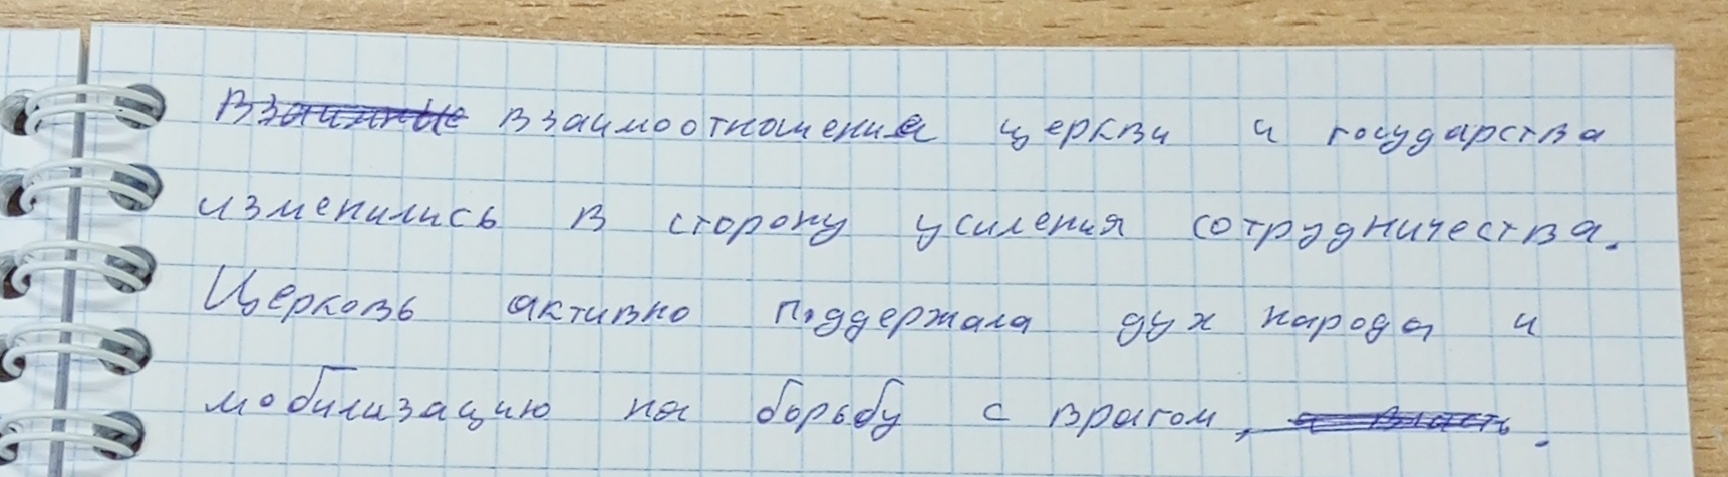 Взаимные взаимоотношения церкви и государства
изменились в сторону усиления сотрудничества.
Церковь активно поддержала дух народа и
мобилизацию на борьбу с врагом, а власть.